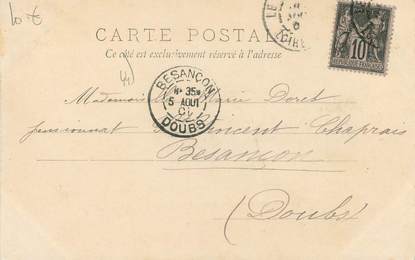 10 €
CARTE POSTALE
Ce côté est exclusivement réservé à l'adresse
LE
LOIRE
10
BESANÇON
35
5 AOUT
01
DOUBS
Mademoiselle Marie Doret
pensionnat St Vincent Chaprais
Besançon
(Doubs)